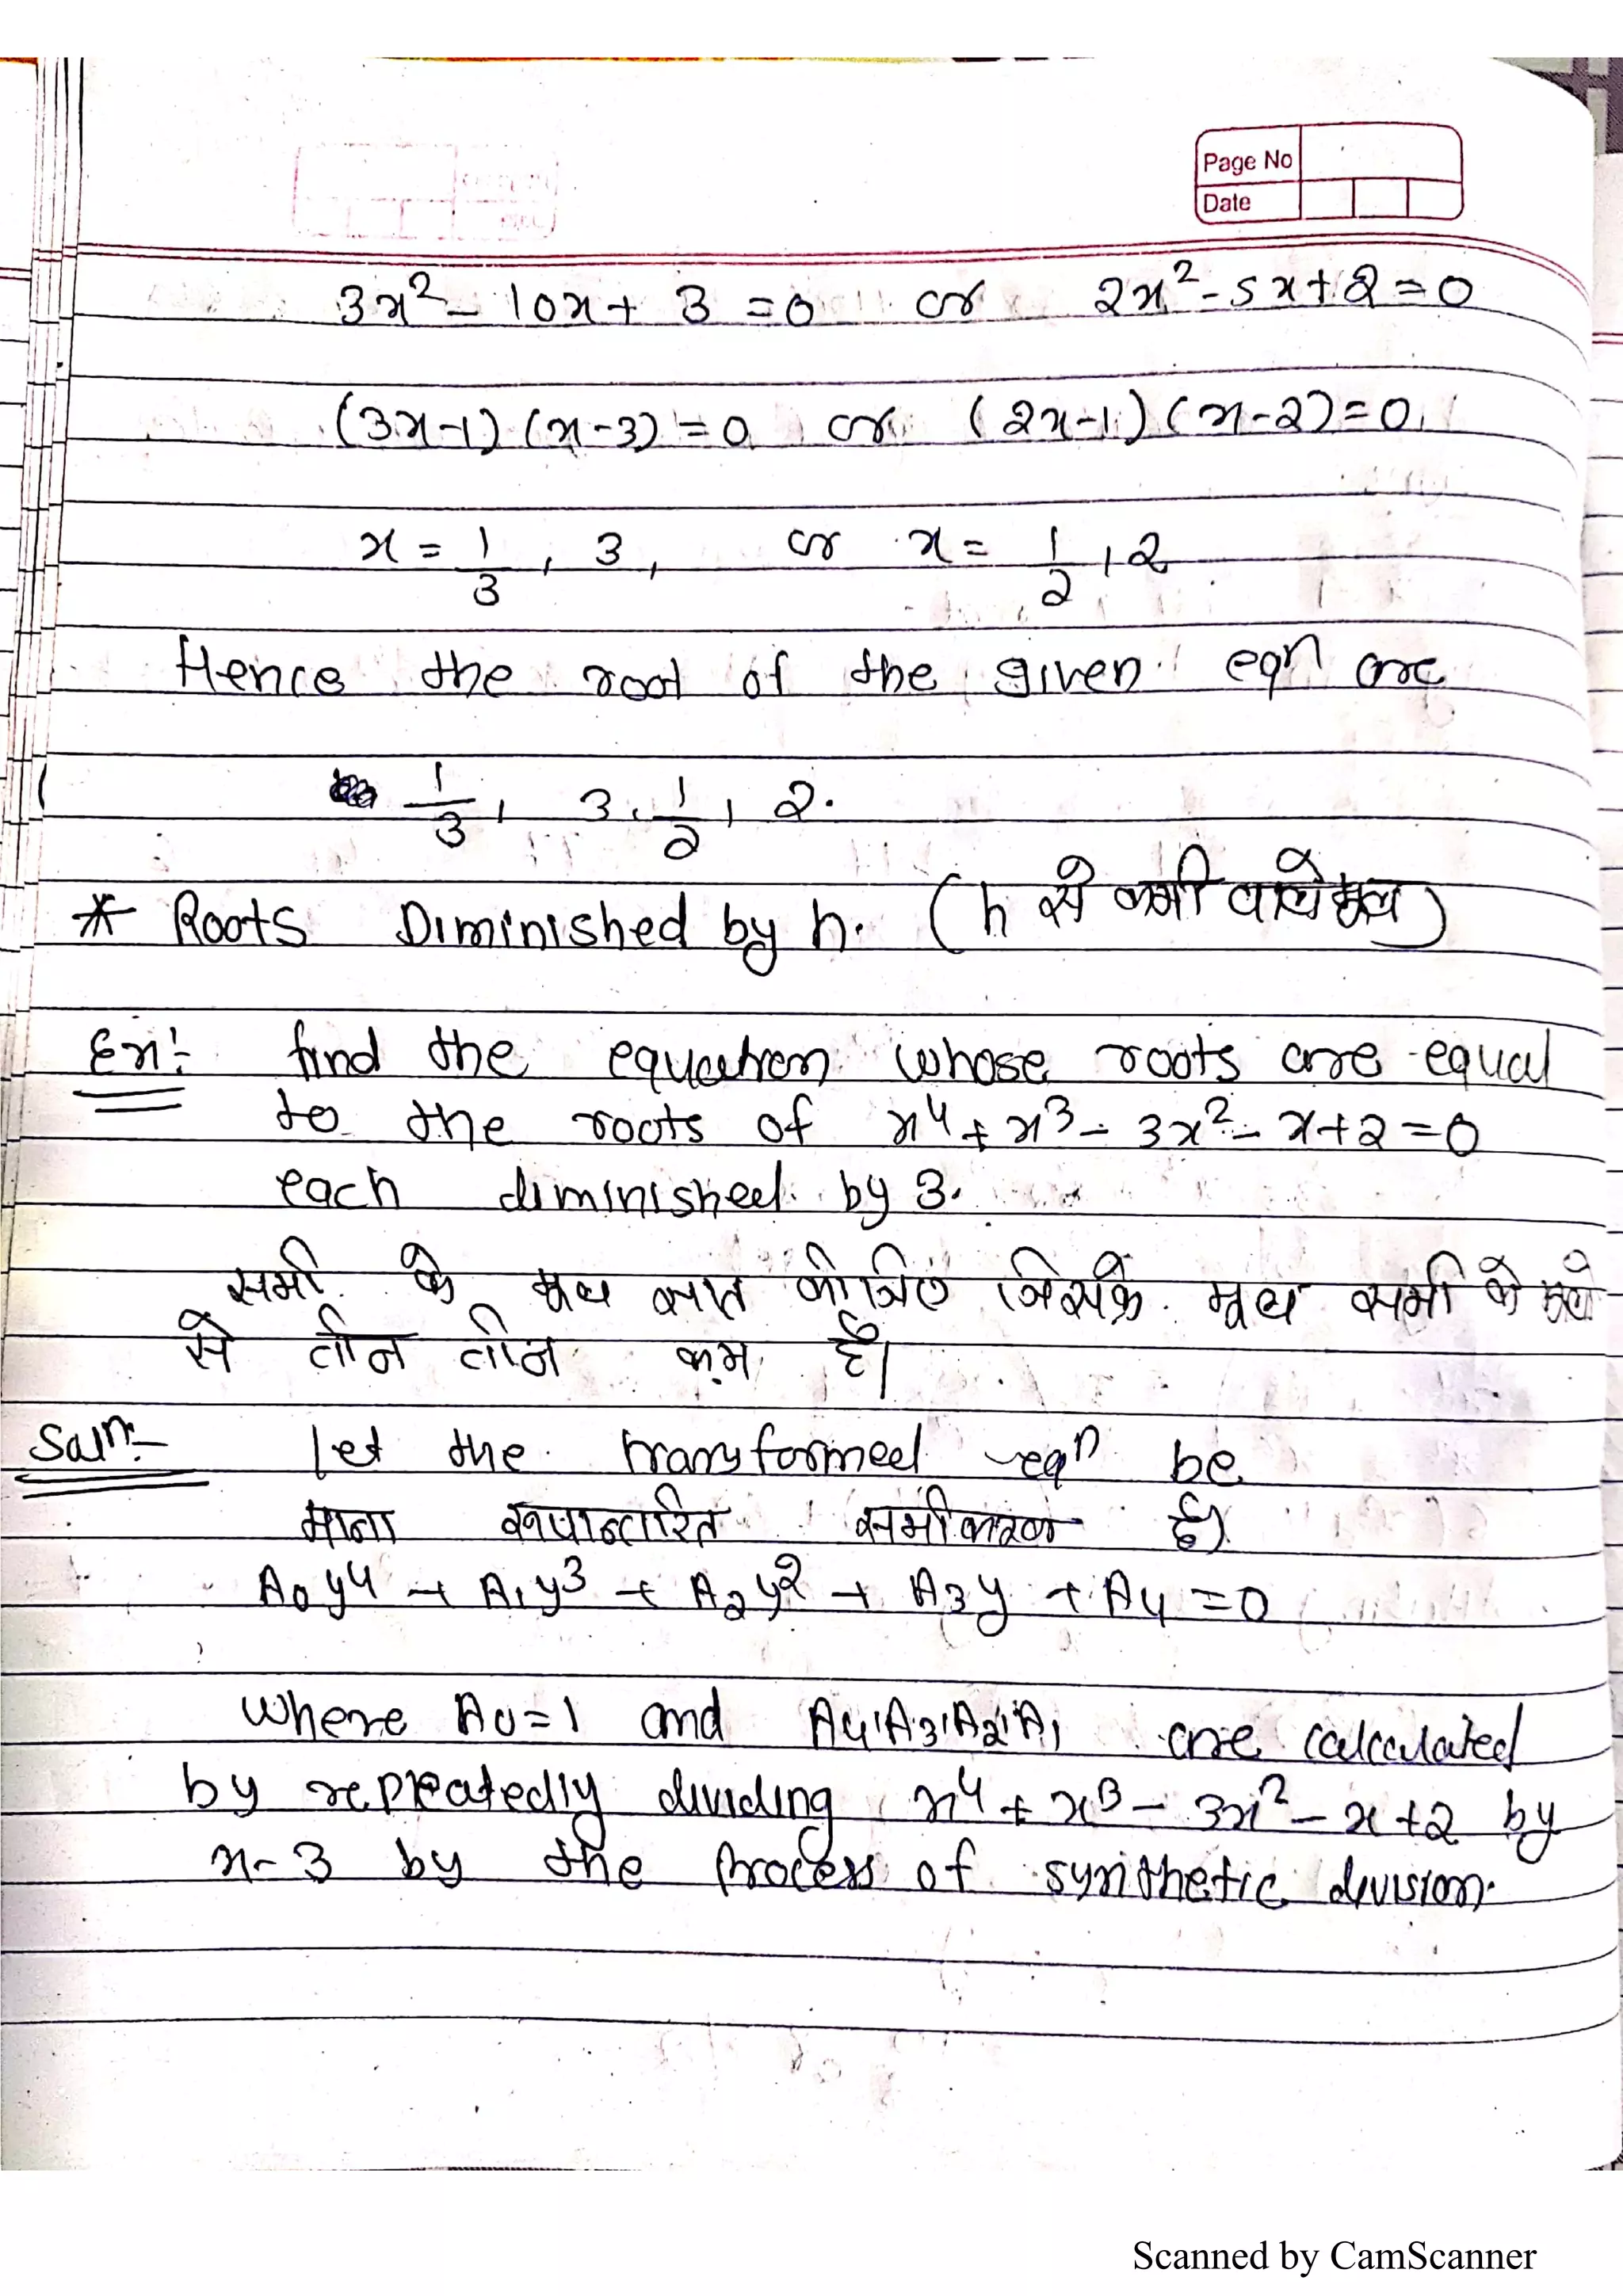 Page No
Date
3x² - 10x + 3 = 0 or 2x² - 5x + 2 = 0
(3x-1) (x-3) = 0 or (2x-1) (x-2) = 0
x = 1/3, 3, or x = 1/2, 2
Hence the root of the given eqn are
1/3, 3, 1/2, 2.
* Roots Diminished by h. (h से कमी वाले मूल)
Ex:- find the equation whose roots are equal
to the roots of x⁴ + x³ - 3x² - x + 2 = 0
each diminished by 3.
समी. के मूल ज्ञात कीजिए जिसके मूल समी के मूलो
से तीन तीन कम है।
Soln:- Let the transformed eqn be
माना रूपान्तरित समीकरण है।
A₀y⁴ + A₁y³ + A₂y² + A₃y + A₄ = 0
where A₀ = 1 and A₄, A₃, A₂, A₁ are calculated
by repeatedly dividing x⁴ + x³ - 3x² - x + 2 by
x - 3 by the process of synthetic division.
Scanned by CamScanner